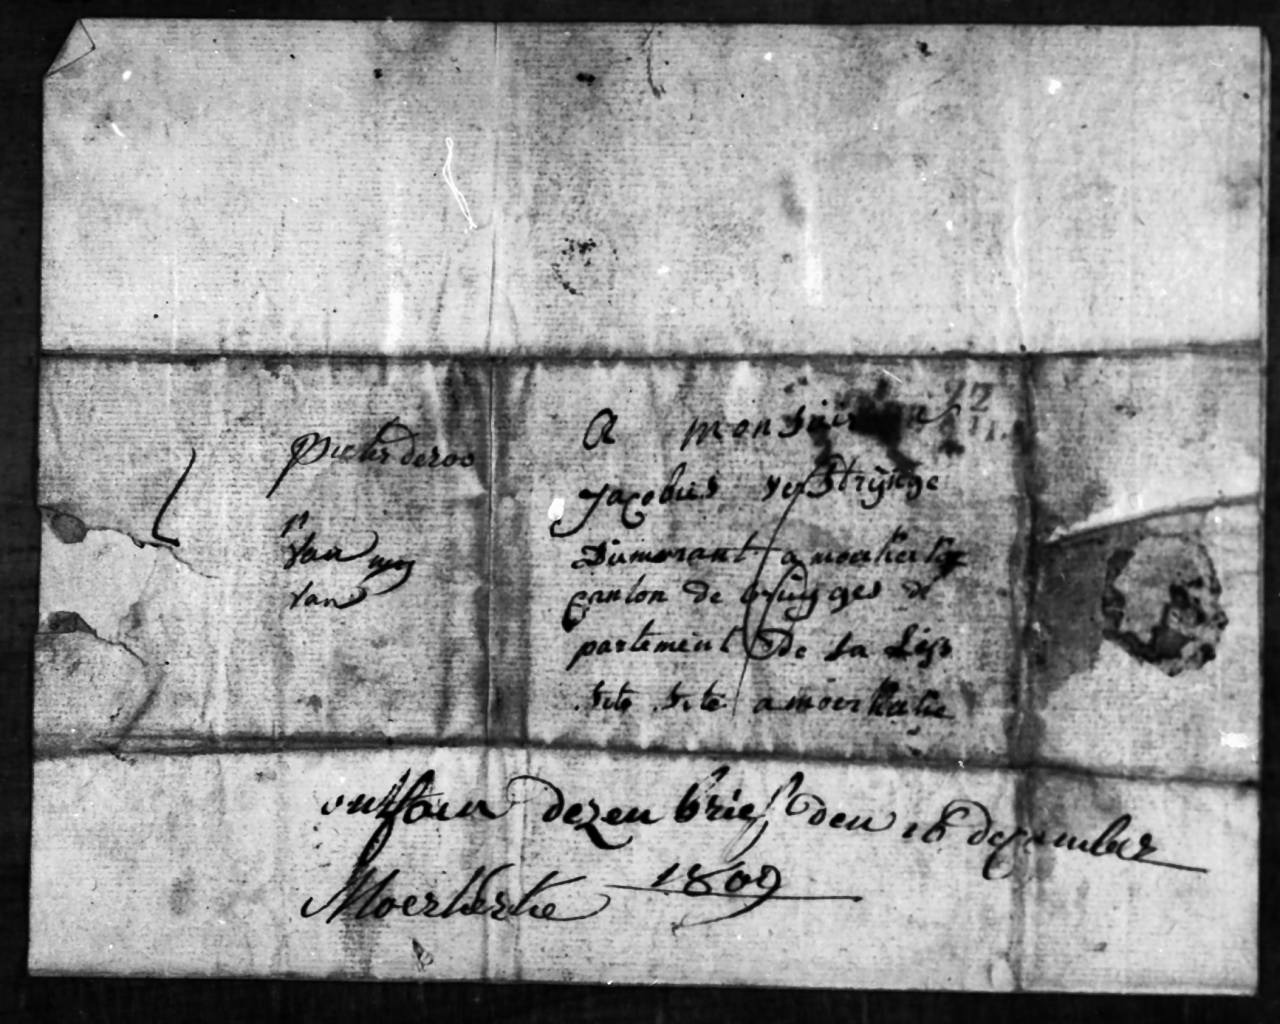 pieter deroo
van mij
van
A monsuir
Jacobus verstrijnge
Dumorant a moerkerke
canton de bruges de
partement de la Lise
sito sito a moerkerke
ontfaen dezen brief den 16 december
Moerkerke 1809